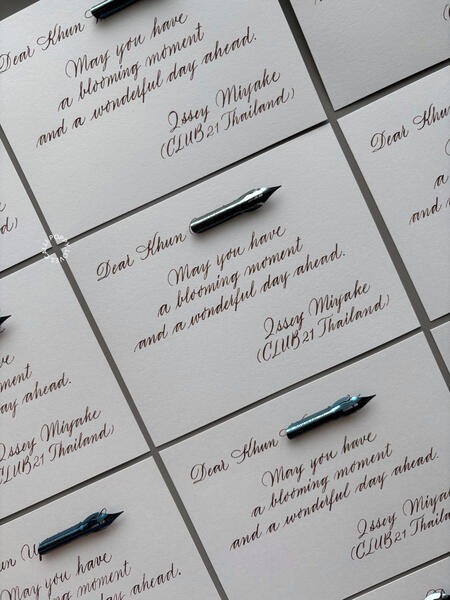 Dear Khun
May you have
a blooming moment
and a wonderful day ahead.
Issey Miyake
(CLUB 21 Thailand)
Dear Khun
May you have
a blooming moment
and a wonderful day ahead.
Issey Miyake
(CLUB 21 Thailand)
Dear Khun
May you have
a blooming moment
and a wonderful day ahead.
Issey Miyake
(CLUB 21 Thailand)
Dear Khun
and
ment
day ahead.
Issey Miyake
CLUB 21 Thailand)
May you have
blooming moment
wonderful day ahead.